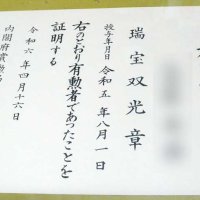 瑞宝双光章
授与年月日 令和五年八月一日
右のとおり有勲者であったことを
証明する
令和六年四月十六日
内閣府賞勲局